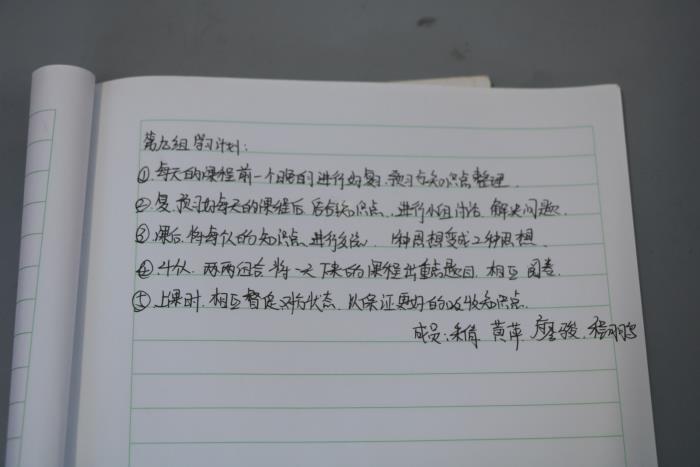 第九组学习计划：
①每天的课程前一个晚自进行复习预习与知识点整理.
②复预习好每天的课程后总结知识点、进行小组讨论 解决问题.
③课后将每人的知识点进行交流. 一种思想变成2种思想.
④4人 两两组合将一天下来的课程出重点题目.相互阅卷.
⑤上课时.相互督促对方状态.以保证更好的吸收知识点.
成员： 黄萍 廖骏.